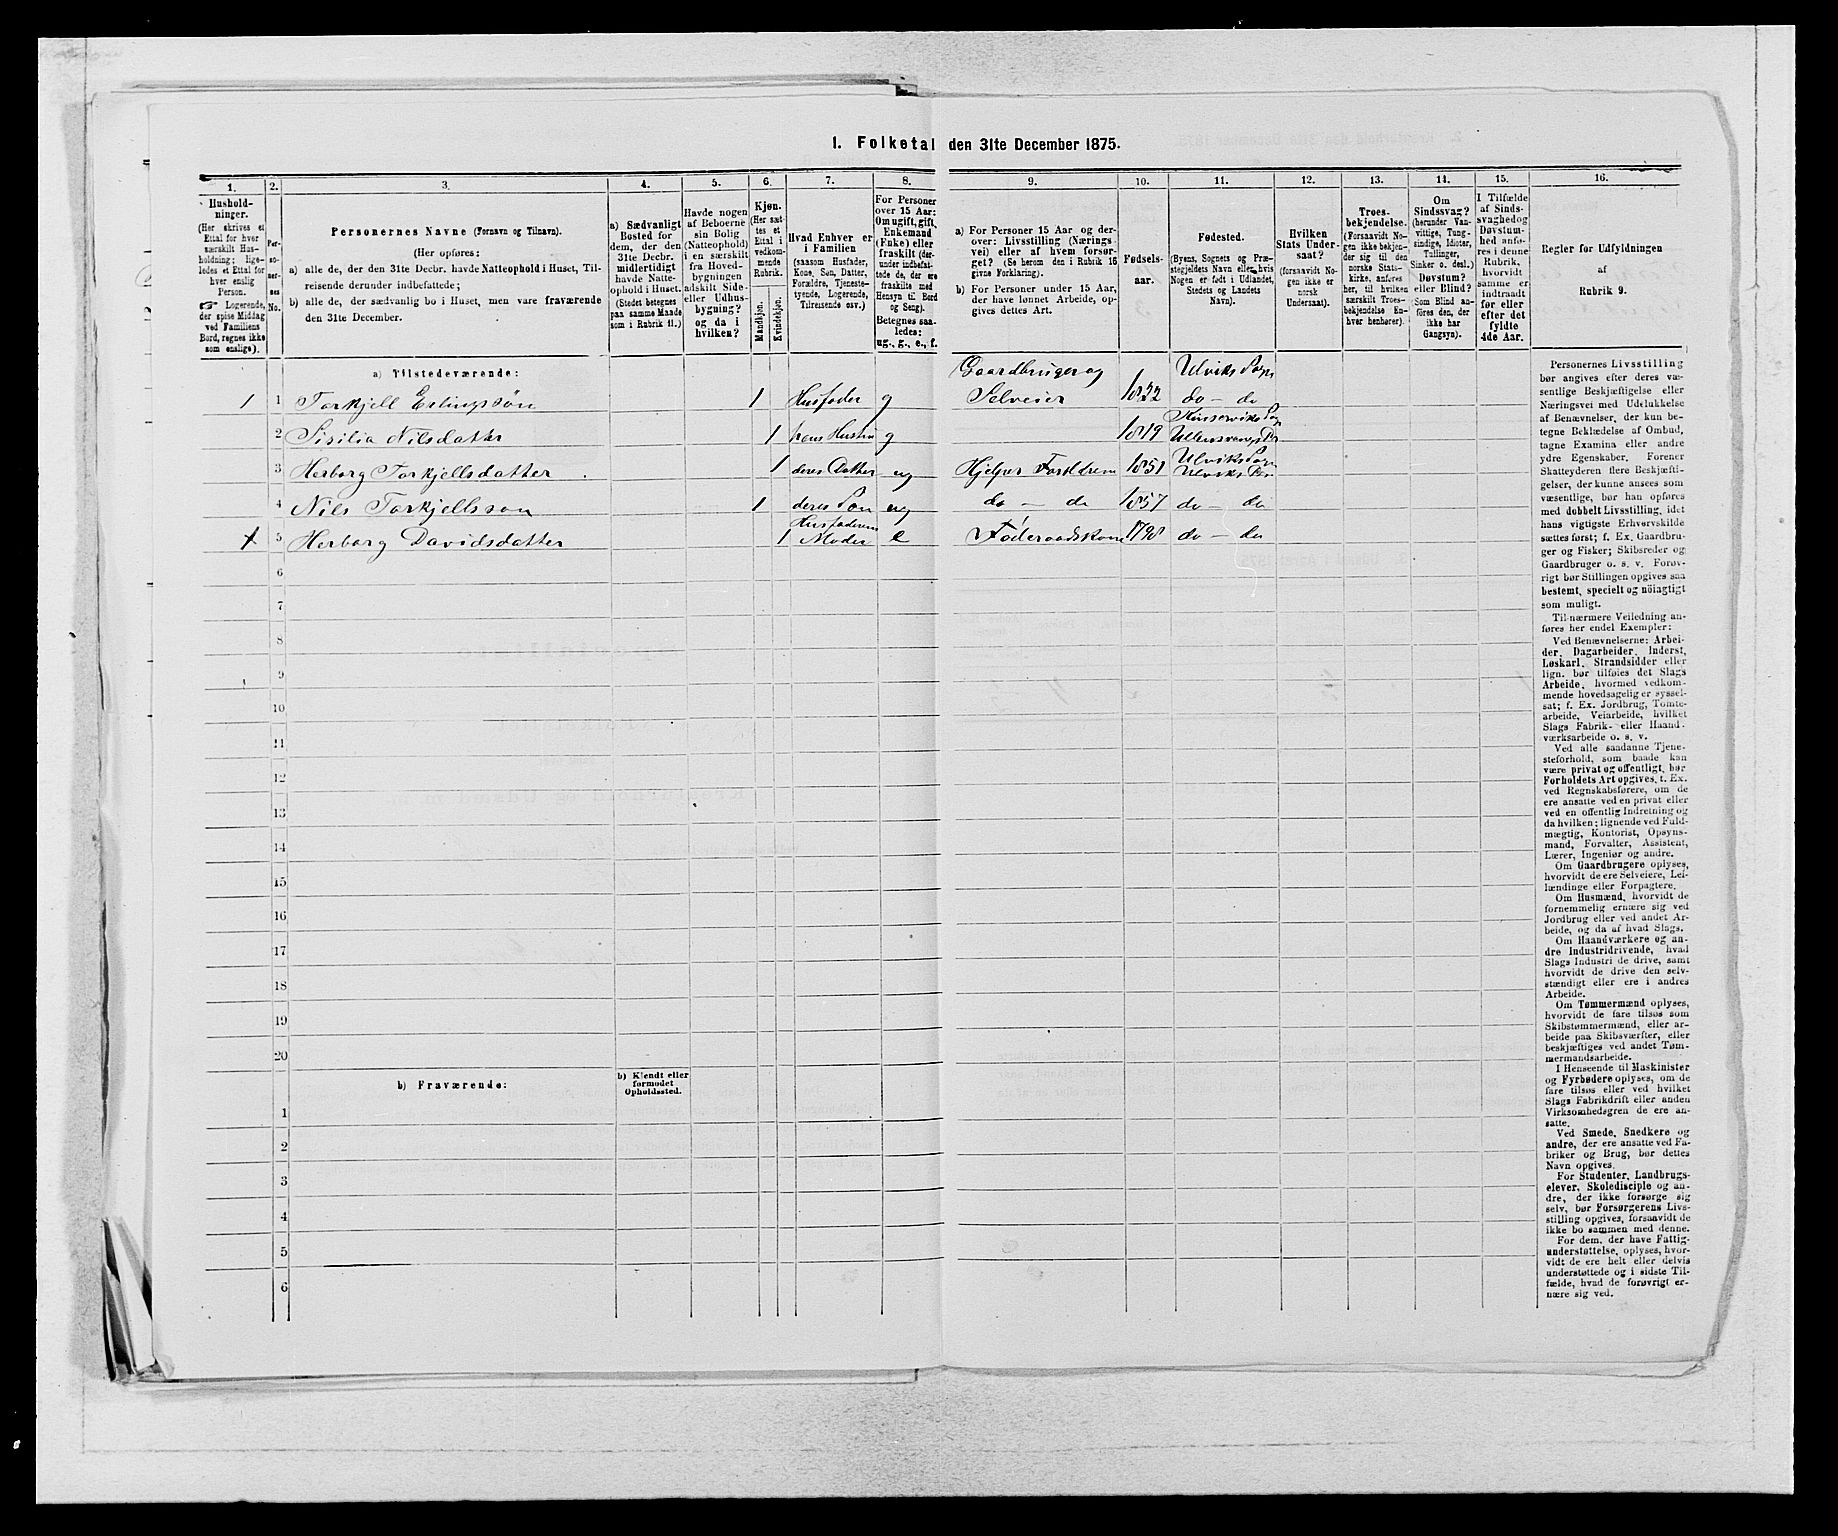 1. Folketal den 31te December 1875.
1. 2. 3. 4. 5. 6. 7. 8. 9. 10. 11. 12. 13. 14. 15. 16.
Hushold-
ninger.
(Her skrives et
Ettal for hver
særskilt Hus-
holdning; lige-
ledes et Ettal for
hver enslig
Person.
☞ Logerende,
der spise Middag
ved Familiens
Bord, regnes ikke
som enslige).
Per-
so-
ner-
nes
No.
Personernes Navne (Fornavn og Tilnavn).
(Her opføres:
a) alle de, der den 31te Decbr. havde Natteophold i Huset, Til-
reisende derunder indbefattede;
b) alle de, der sædvanlig bo i Huset, men vare fraværende
den 31te December.
a) Sædvanligt
Bosted for
dem, der den
31te Decbr.
midlertidigt
havde Natte-
ophold i Huset.
(Stedet betegnes
paa samme Maade
som i Rubrik 11.)
Havde nogen
af Beboerne
sin Bolig
(Natteophold)
i en særskilt
fra Hoved-
bygningen
adskilt Side-
eller Udhus-
bygning?
og da i
hvilken?
Kjøn.
(Her sæt-
tes et
Ettal i
vedkom-
mende
Rubrik.
Mandkjøn.
Kvindekjøn.
Hvad Enhver er
i Familien
(saasom Husfader,
Kone, Søn, Datter,
Forældre, Tjeneste-
tyende, Logerende,
Tilreisende osv.)
For Personer
over 15 Aar:
Om ugift, gift,
Enkemand
(Enke) eller
fraskilt (der-
under indbefat-
tede de, der ere
fraskilte med
Hensyn til Bord
og Seng).
Betegnes saa-
ledes:
ug., g., e., f.
a) For Personer 15 Aar og der-
over: Livsstilling (Nærings-
vei) eller af hvem forsør-
get? (Se herom den i Rubrik 16
givne Forklaring).
b) For Personer under 15 Aar,
der have lønnet Arbeide, op-
gives dettes Art.
Fødsels-
aar.
Fødested.
(Byens, Sognets og Præ-
stegjeldets Navn eller, hvis
Nogen er født i Udlandet,
Stedets og Landets
Navn).
Hvilken
Stats Under-
saat?
(forsaavidt No-
gen ikke er
norsk
Undersaat).
Troes-
bekjendelse.
(Forsaavidt No-
gen ikke bekjen-
der sig til den
norske Stats-
kirke, anføres
her, til hvilken
særskilt Troes-
bekjendelse En-
hver henhører).
Om
Sindssvag?
(herunder Van-
vittige, Tung-
sindige, Idioter,
Tullinger,
Sinker o. desl.)
Døvstum?
eller Blind?
(Som Blind an-
føres den, der
ikke har
Gangsyn).
I Tilfælde
af Sinds-
svaghed og
Døvstum-
hed anfø-
res i denne
Rubrik,
hvorvidt
samme er
indtraadt
før eller
efter det
fyldte
4de Aar.
Regler for Udfyldningen
af
Rubrik 9.
a) Tilstedeværende:
Gaardbruger og Ulviks Sogn
1 1 Torkjell Erlingssøn 1 Husfader g Selveier 1822 do - do
Kinserviks Sogn
2 Sisilia Nilsdatter 1 hans Hustru g 1819 Ullensvangs Pr
Ulviks Sogn
3 Herborg Torkjellsdatter 1 deres Datter ug Hjelper Forældrene 1851 Ulviks Pr
4 Nils Torkjellsson 1 deres Søn ug do - do 1857 do - do
Husfaderens
5 Herborg Davidsdatter 1 Moder e Føderaadskone 1790 do - do
6
7
8
9
10
11
12
13
14
15
16
17
18
19
20
b) Fraværende:
b) Kjendt eller
formodet
Opholdssted.
1
2
3
4
5
6
Personernes Livsstilling
bør angives efter deres væ-
sentlige Beskjæftigelse eller
Næringsvei med Udelukkelse
af Benævnelser, der kun be-
tegne Beklædelse af Ombud,
tagne Examina eller andre
ydre Egenskaber. Forener
Skatteyderen flere Beskjæfti-
gelser, der kunne ansees som
væsentlige, bør han opføres
med dobbelt Livsstilling, idet
hans vigtigste Erhvervskilde
sættes først; f. Ex. Gaardbru-
ger og Fisker; Skibsreder og
Gaardbruger o. s. v. Forøv-
rigt bør Stillingen opgives saa
bestemt, specielt og nöiagtigt
som muligt.
Til nærmere Veiledning an-
føres her endel Exempler:
Ved Benævnelserne: Arbei-
der, Dagarbeider, Inderst,
Løskarl, Strandsidder eller
lign. bør tilføies det Slags
Arbeide, hvormed vedkom-
mende hovedsagelig er syssel-
sat; f. Ex. Jordbrug, Tomte-
arbeide, Veiarbeide, hvilket
Slags Fabrik- eller Haand-
værksarbeide o. s. v.
Ved alle saadanne Tjene-
steforhold, som baade kan
være privat og offentligt, bør
Forholdets Art opgives, t. Ex.
ved Regnskabsførere, om de
ere ansatte ved en privat eller
ved en offentlig Indretning og
da hvilken; lignende ved Fuld-
mægtig, Kontorist, Opsyns-
mand, Forvalter, Assistent,
Lærer, Ingeniør og andre.
Om Gaardbrugere oplyses,
hvorvidt de ere Selveiere, Lei-
lændinge eller Forpagtere.
Om Husmænd, hvorvidt de
fornemmelig ernære sig ved
Jordbrug eller ved andet Ar-
beide, og da af hvad Slags.
Om Haandværkere og an-
dre Industridrivende, hvad
Slags Industri de drive, samt
hvorvidt de drive den selv-
stændigt eller ere i andres
Arbeide.
Om Tømmermænd oplyses,
hvorvidt de fare tilsøs som
Skibstømmermænd, eller ar-
beide paa Skibsværfter, eller
beskjæftiges ved andet Tøm-
mermandsarbeide.
I Henseende til Maskinister
og Fyrbødere oplyses, om de
fare tilsøs eller ved hvilket
Slags Fabrikdrift eller anden
Virksomhedsgren de ere an-
satte.
Ved Smede, Snedkere og
andre, der ere ansatte ved Fa-
briker og Brug, bør dettes
Navn opgives.
For Studenter, Landbrugs-
elever, Skoledisciple og an-
dre, der ikke forsørge sig
selv, bør Forsørgerens Livs-
stilling opgives, forsaavidt de
ikke bo sammen med denne.
For dem, der have Fattig-
understøttelse, oplyses, hvor-
vidt de ere helt eller delvis
understøttede og i sidste Til-
fælde, hvad de forøvrigt er-
nære sig ved.